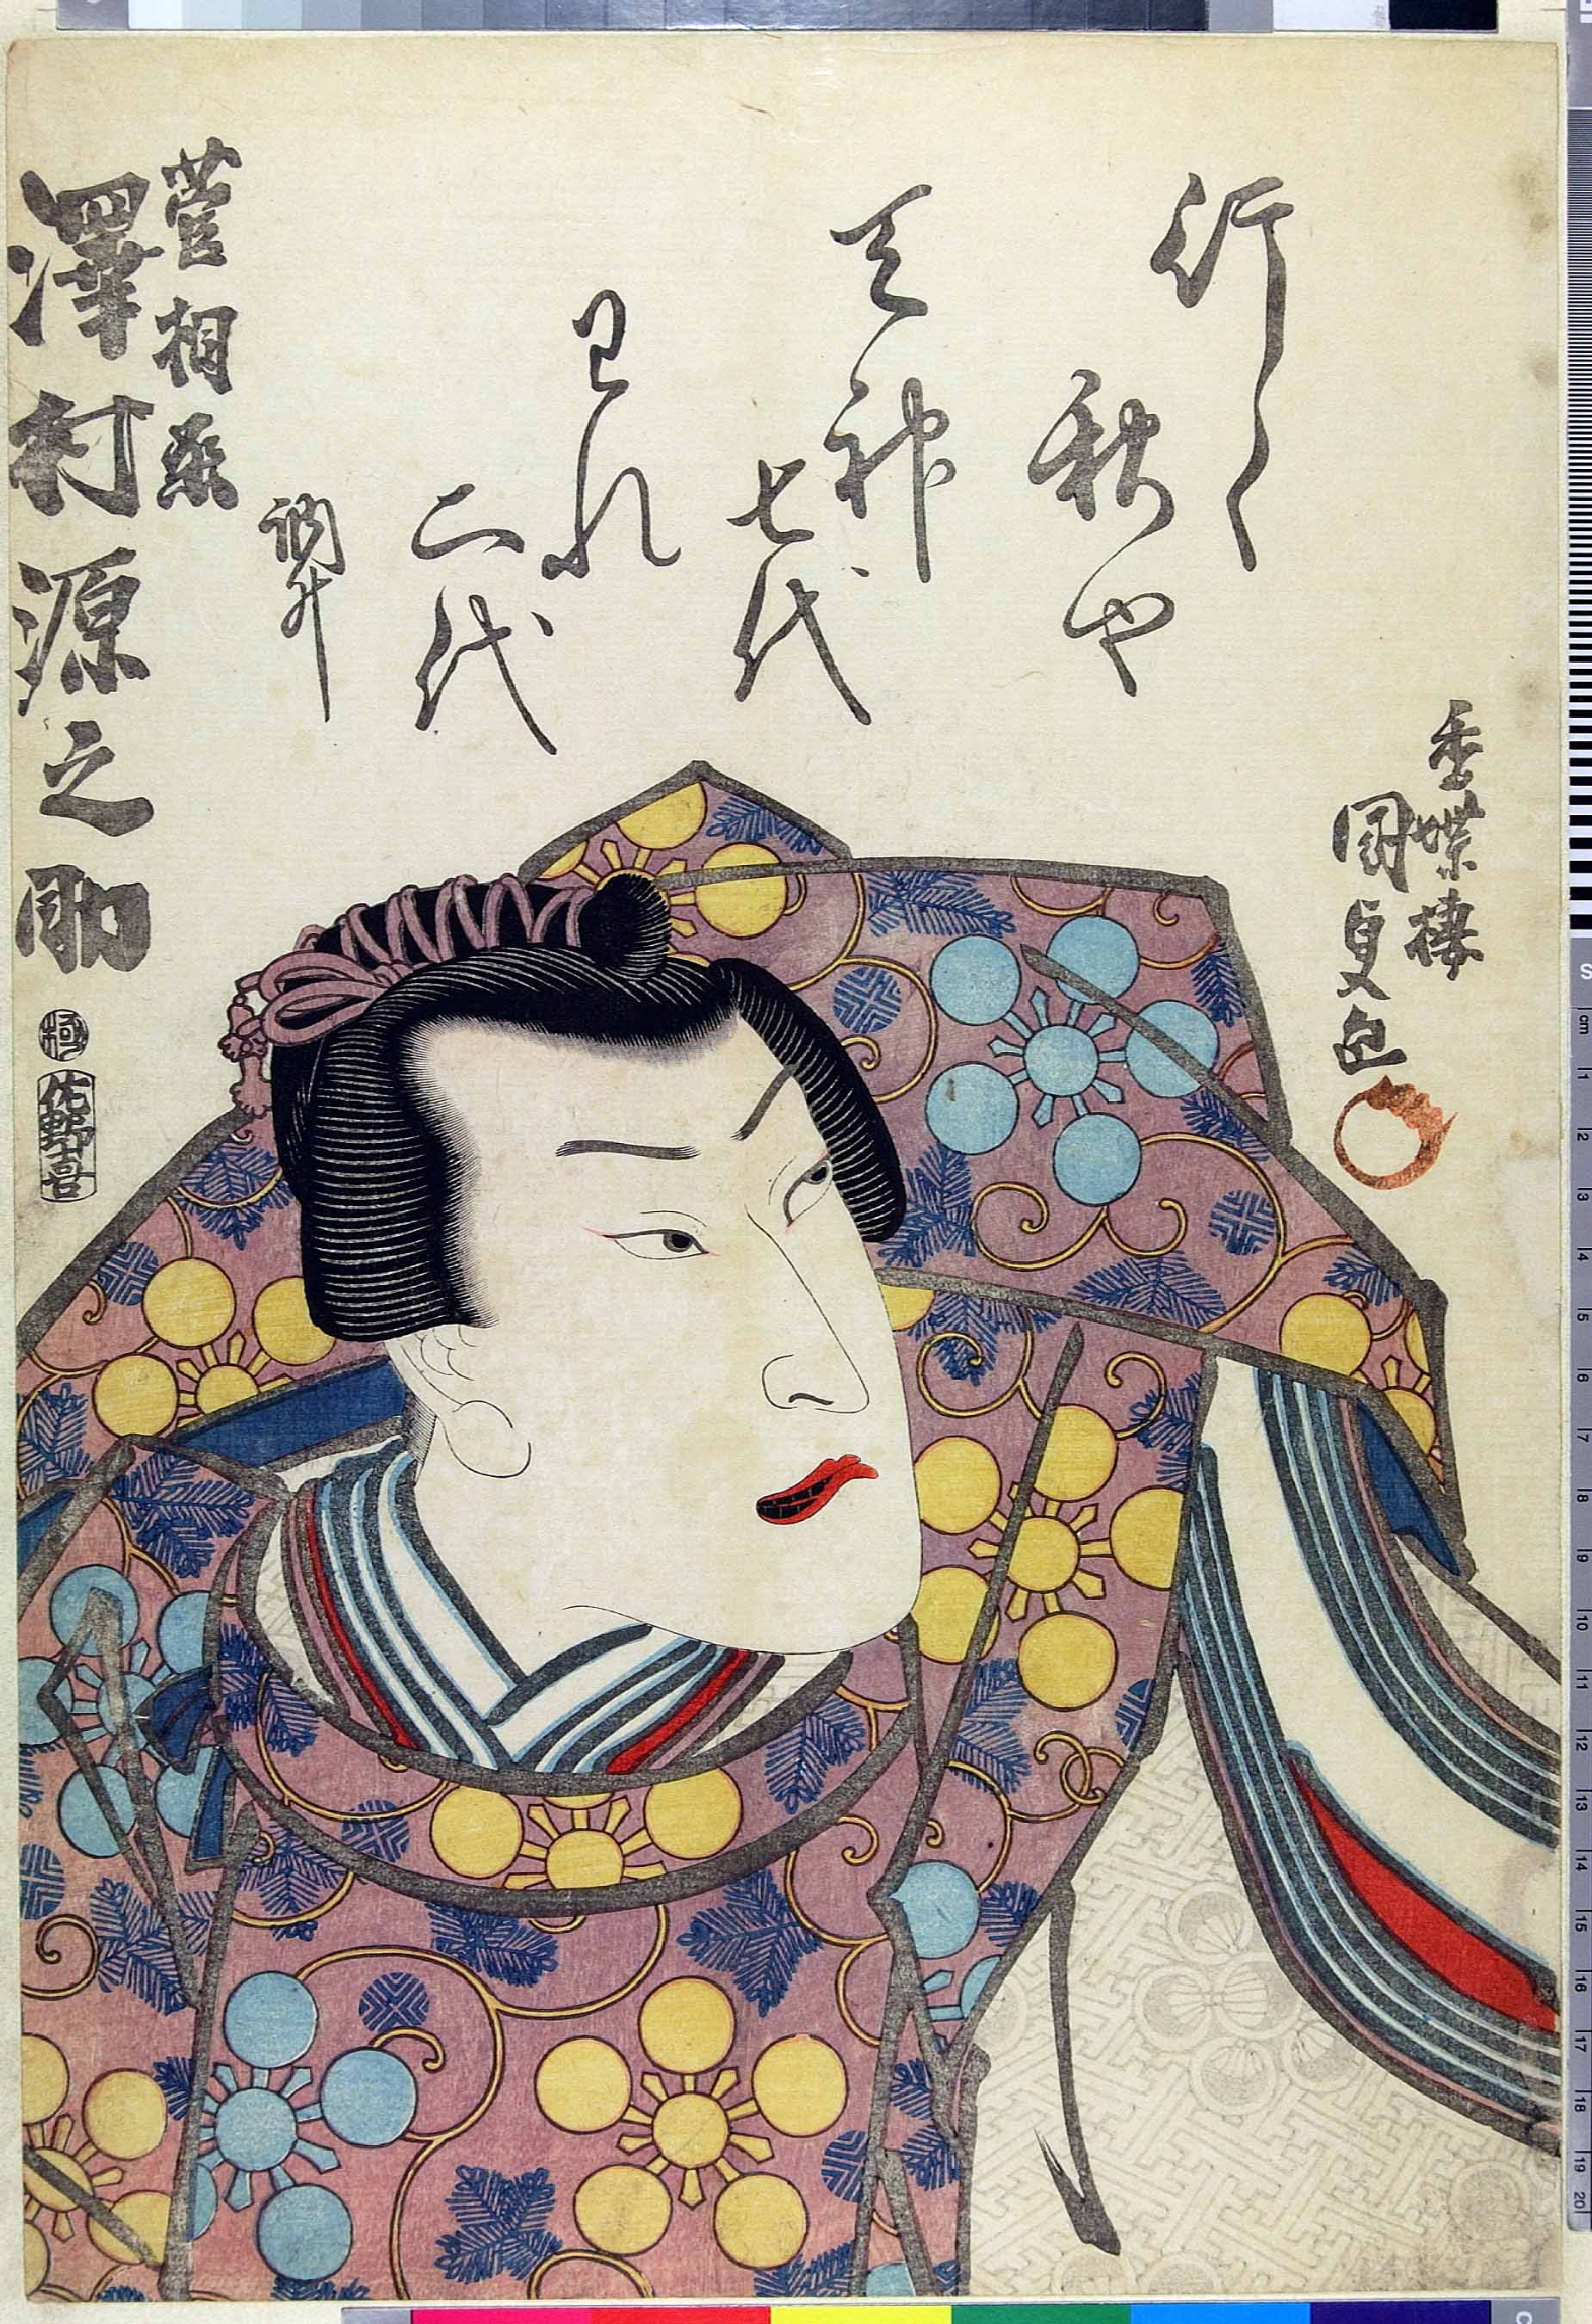 香蝶楼
國貞画
行く
秋や
天神
七代
われ
二代
訥升
菅相丞
澤村源之助
極
佐野喜
cm 1 2 3 4 5 6 7 8 9 10 11 12 13 14 15 16 17 18 19 20